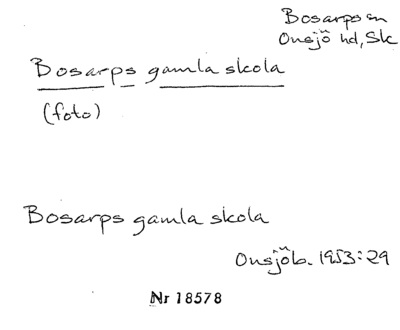 Bosarps sn
Onsjö hd, Sk
Bosarps gamla skola
(foto)
Bosarps gamla skola
Onsjöb. 1953:29
Nr 18578